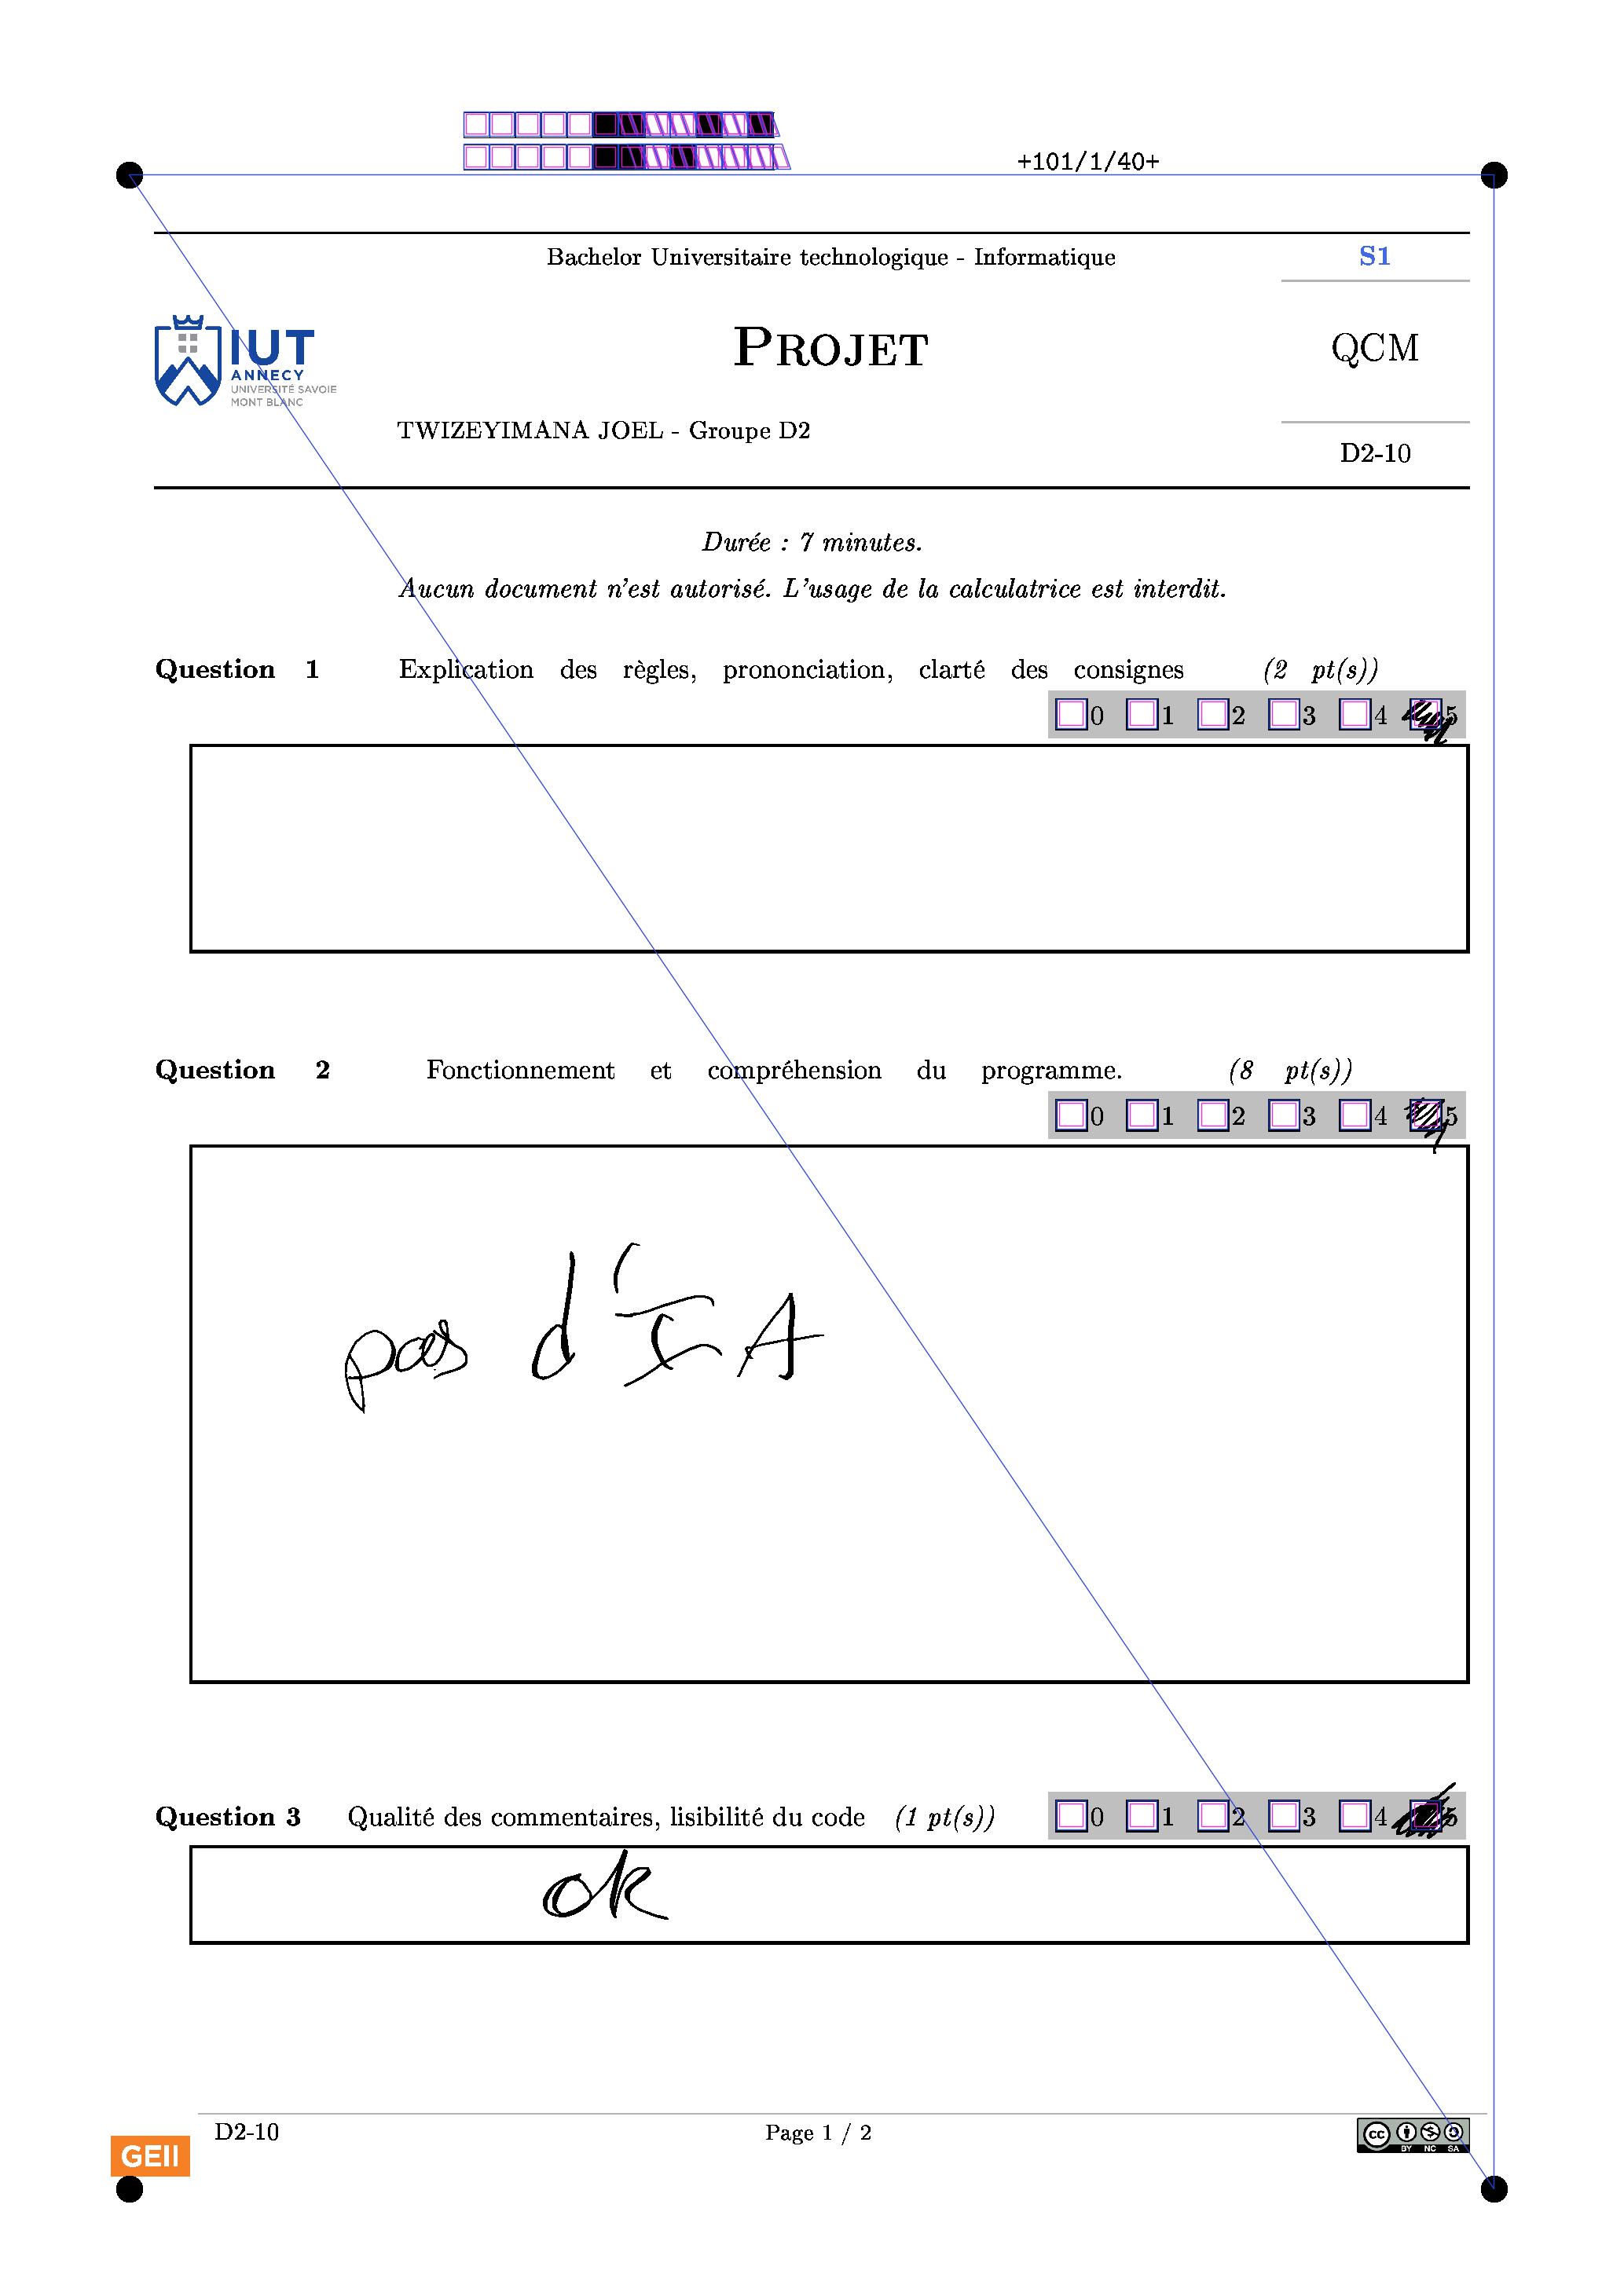 +101/1/40+
Bachelor Universitaire technologique - Informatique
S1
IUT
ANNECY
UNIVERSITÉ SAVOIE
MONT BLANC
PROJET
QCM
TWIZEYIMANA JOEL - Groupe D2
D2-10
Durée : 7 minutes.
Aucun document n'est autorisé. L'usage de la calculatrice est interdit.
Question 1 Explication des règles, prononciation, clarté des consignes (2 pt(s))
0 1 2 3 4 5
Question 2 Fonctionnement et compréhension du programme. (8 pt(s))
0 1 2 3 4 5
pas d'IA
Question 3 Qualité des commentaires, lisibilité du code (1 pt(s)) 0 1 2 3 4 5
ok
D2-10 Page 1 / 2
GEII
cc BY NC SA